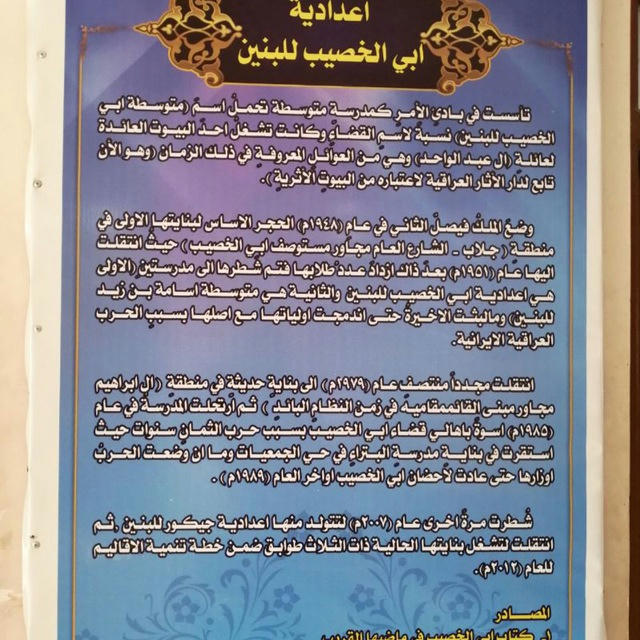 اعدادية
ابي الخصيب للبنين
تأسست في بادئ الأمر كمدرسة متوسطة تحمل اسم (متوسطة ابي
الخصيب للبنين) نسبة لاسم القضاء وكانت تشغل احد البيوت العائدة
لعائلة (ال عبد الواحد) وهي من العوائل المعروفة في ذلك الزمان (وهو الآن
تابع لدار الآثار العراقية لاعتباره من البيوت الأثرية).
وضع الملك فيصل الثاني في عام (١٩٤٨م) الحجر الاساس لبنايتها الاولى في
منطقة ( جلاب - الشارع العام مجاور مستوصف ابي الخصيب ) حيث انتقلت
اليها عام (١٩٥١م) بعد ذلك ازداد عدد طلابها فتم شطرها الى مدرستين (الاولى
هي اعدادية ابي الخصيب للبنين والثانية هي متوسطة اسامة بن زيد
للبنين) ومالبثت الاخيرة حتى اندمجت اولياتها مع اصلها بسبب الحرب
العراقية الايرانية.
انتقلت مجدداً منتصف عام (١٩٧٩م) الى بناية حديثة في منطقة (ال ابراهيم
مجاور مبنى القائممقامية في زمن النظام البائد ) ثم أرتحلت المدرسة في عام
(١٩٨٥م) اسوة باهالي قضاء ابي الخصيب بسبب حرب الثمان سنوات حيث
استقرت في بناية مدرسة البزاء في حي الجمعيات وما ان وضعت الحرب
اوزارها حتى عادت لأحضان ابي الخصيب اواخر العام (١٩٨٩م) .
شطرت مرة اخرى عام (٢٠٠٧م) لتتولد منها اعدادية جيكور للبنين ,ثم
انتقلت لتشغل بنايتها الحالية ذات الثلاث طوابق ضمن خطة تنمية الاقاليم
للعام (٢٠١٢م).
المصادر
كتاب ابي الخصيب في ماضيها القريب